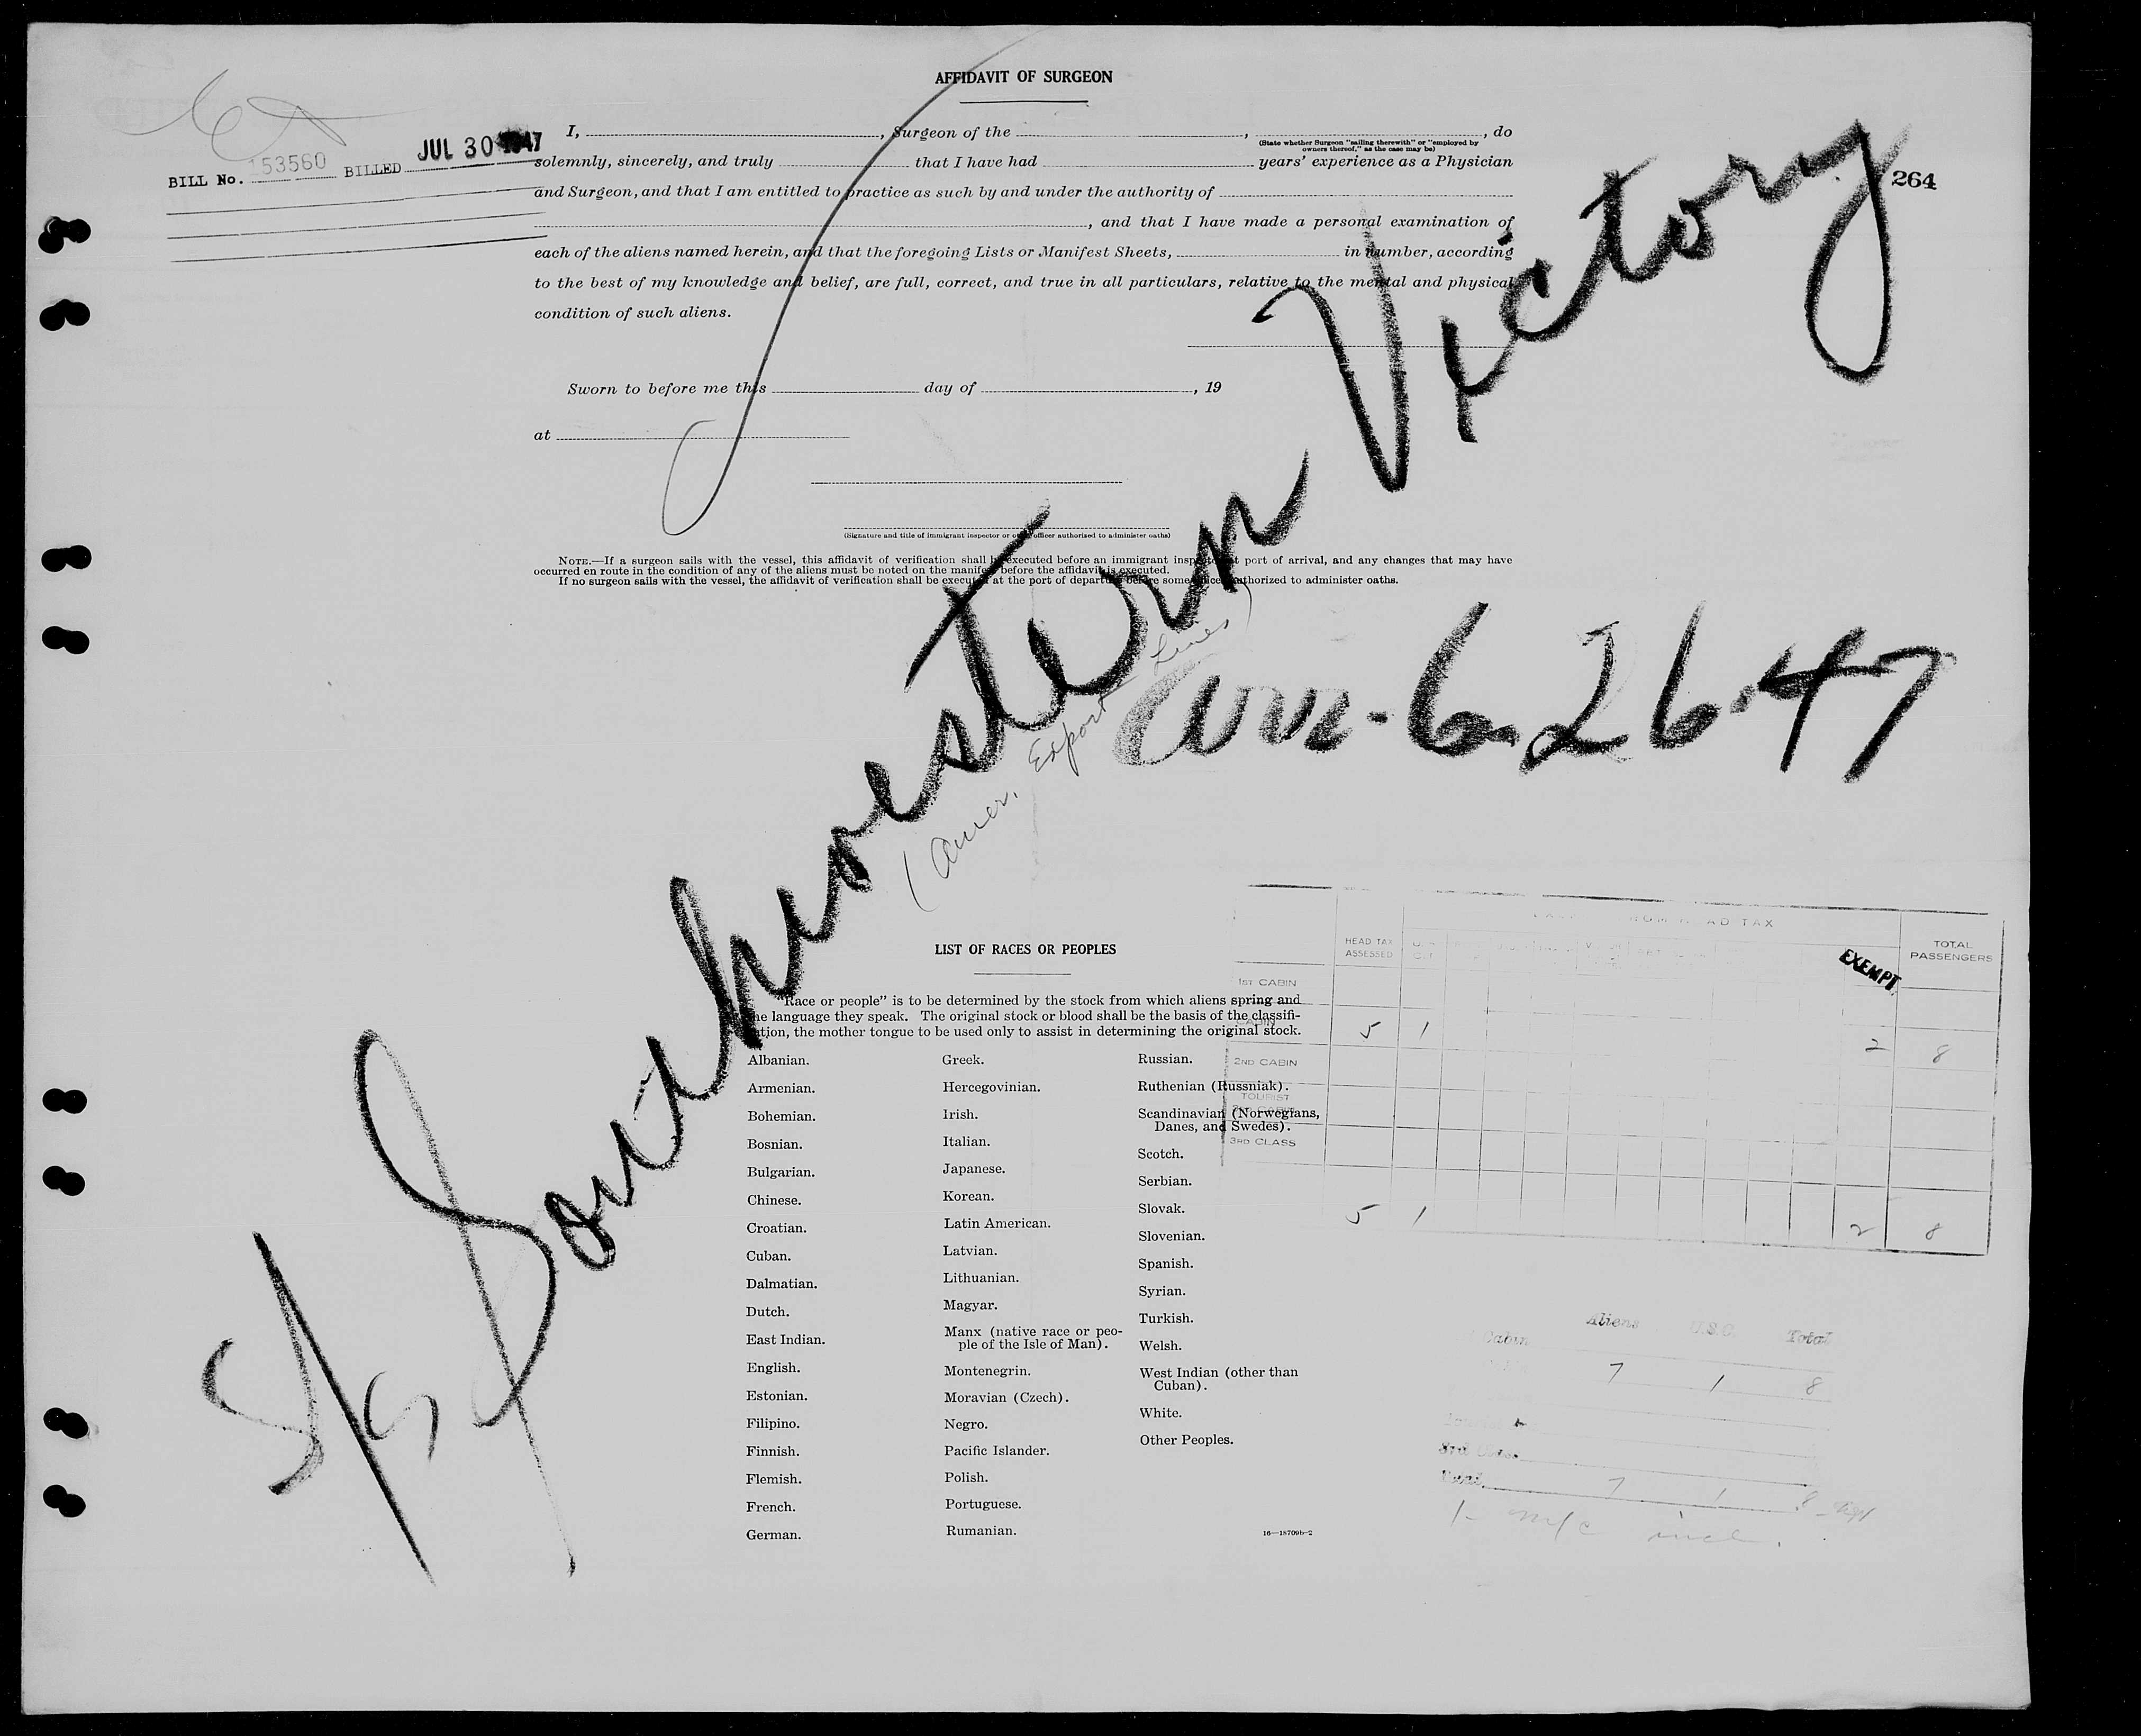 AFFIDAVIT OF SURGEON
BILL No. 153560 BILLED JUL 30 1947
I, , Surgeon of the , , do
(State whether Surgeon "sailing therewith" or "employed by
owners thereof," as the case may be)
solemnly, sincerely, and truly that I have had years' experience as a Physician
264
and Surgeon, and that I am entitled to practice as such by and under the authority of
, and that I have made a personal examination of
each of the aliens named herein, and that the foregoing Lists or Manifest Sheets, in number, according
to the best of my knowledge and belief, are full, correct, and true in all particulars, relative to the mental and physical
condition of such aliens.
Sworn to before me this day of , 19
at
(Signature and title of immigrant inspector or other officer authorized to administer oaths)
NOTE.—If a surgeon sails with the vessel, this affidavit of verification shall be executed before an immigrant inspector at port of arrival, and any changes that may have
occurred en route in the condition of any of the aliens must be noted on the manifest before the affidavit is executed.
If no surgeon sails with the vessel, the affidavit of verification shall be executed at the port of departure before some officer authorized to administer oaths.
S/S Southwestern Victory
(Amer. Export Lines)
arr-6-26-47
LIST OF RACES OR PEOPLES
"Race or people" is to be determined by the stock from which aliens spring and
the language they speak. The original stock or blood shall be the basis of the classifi-
cation, the mother tongue to be used only to assist in determining the original stock.
Albanian.
Armenian.
Bohemian.
Bosnian.
Bulgarian.
Chinese.
Croatian.
Cuban.
Dalmatian.
Dutch.
East Indian.
English.
Estonian.
Filipino.
Finnish.
Flemish.
French.
German.
Greek.
Hercegovinian.
Irish.
Italian.
Japanese.
Korean.
Latin American.
Latvian.
Lithuanian.
Magyar.
Manx (native race or peo-
ple of the Isle of Man).
Montenegrin.
Moravian (Czech).
Negro.
Pacific Islander.
Polish.
Portuguese.
Rumanian.
Russian.
Ruthenian (Russniak).
Scandinavian (Norwegians,
Danes, and Swedes).
Scotch.
Serbian.
Slovak.
Slovenian.
Spanish.
Syrian.
Turkish.
Welsh.
West Indian (other than
Cuban).
White.
Other Peoples.
16—18709b-2
HEAD TAX
ASSESSED
HEAD TAX
EXEMPT
TOTAL
PASSENGERS
1ST CABIN
CABIN 5 1 2 8
2ND CABIN
TOURIST
3RD CLASS
5 1 2 8
Aliens U.S.C. Total
Cabin 7 1 8
3rd Class
Total 7 1 8
1- m/c incl.